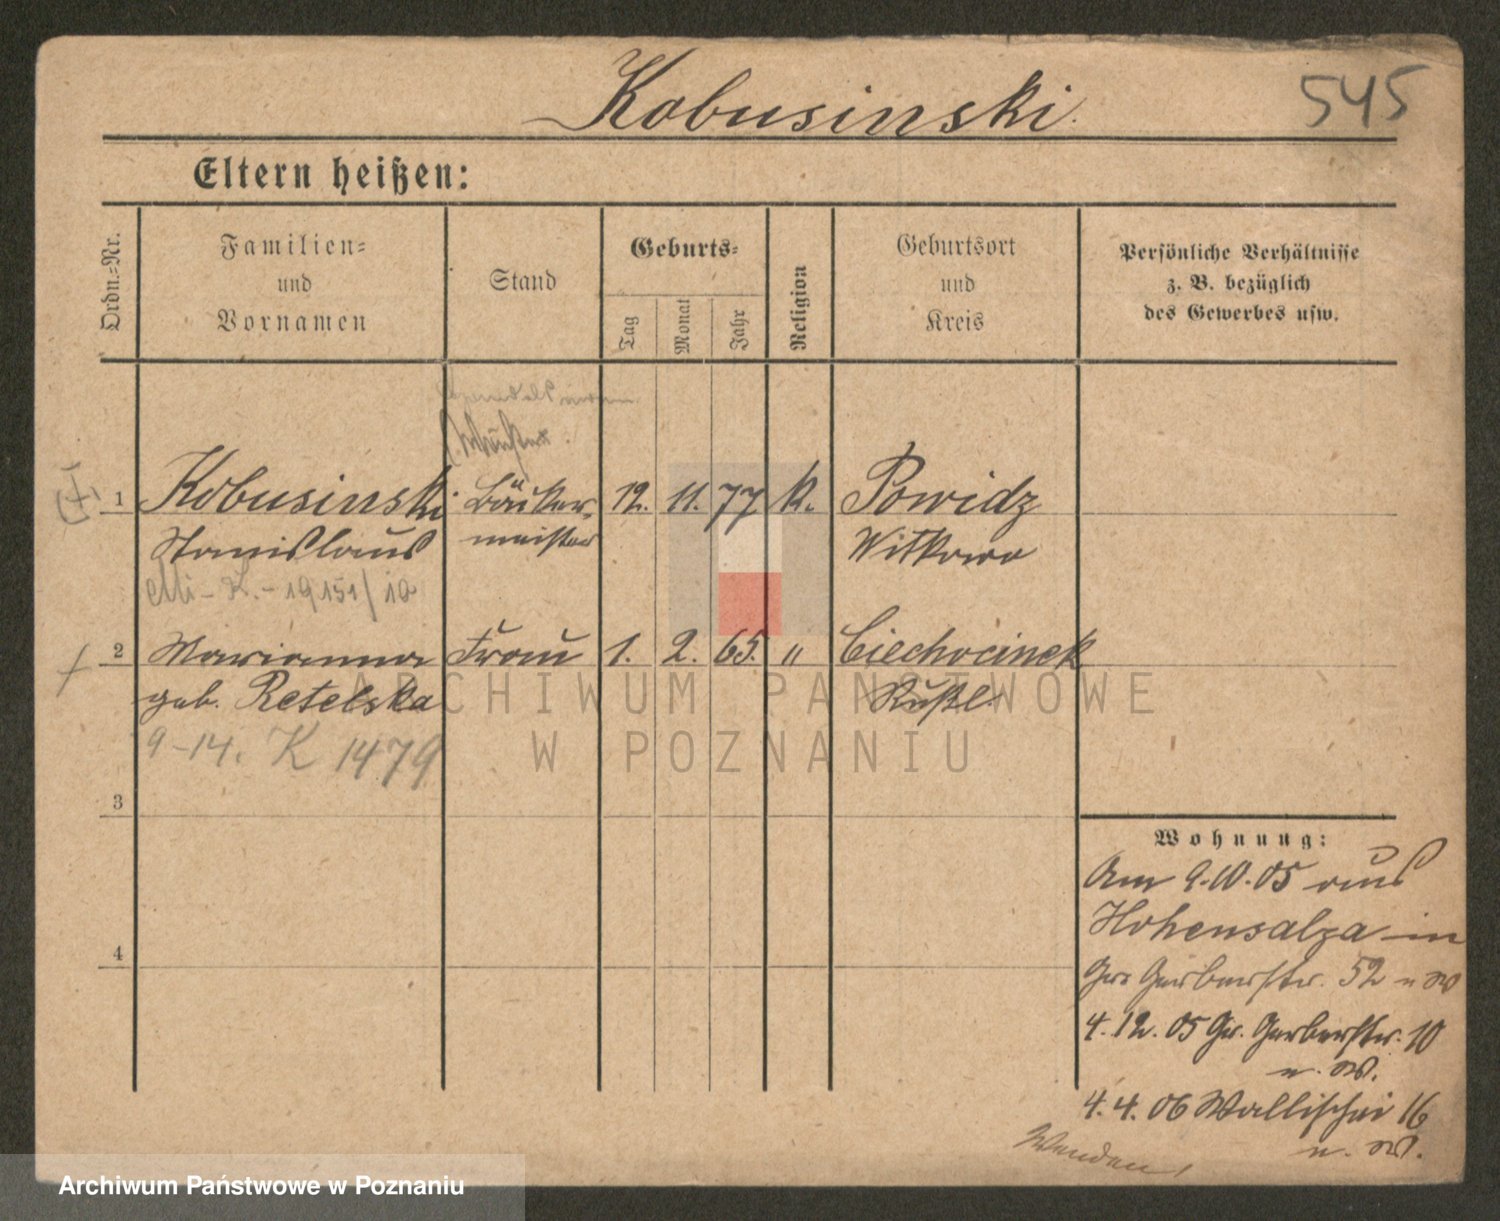 Kobusinski.
545
Eltern heißen:
Ordn.=Nr.
Familien=
und
Vornamen
Stand
Geburts=
Tag
Monat
Jahr
Religion
Geburtsort
und
Kreis
Persönliche Verhältnisse
z. B. bezüglich
des Gewerbes usw.
1 Kobusinski Bäcker- 12. 11. 77 k. Powidz
Stanislaus meister Witkowo
19151/10
2 Marianna Frau 1. 2. 65. " Ciechocinek
geb. Retelska Rußl.
9-14. K 1479
3
4
Wohnung:
Am 9.10.05 aus
Hohensalza in
Gerberstr. 52 u W
4.12.05 Gr. Gerberstr. 10
u. W.
4.4.06 Wallischei 16
u. W.
Wenden!
ARCHIWUM PAŃSTWOWE
W POZNANIU
Archiwum Państwowe w Poznaniu